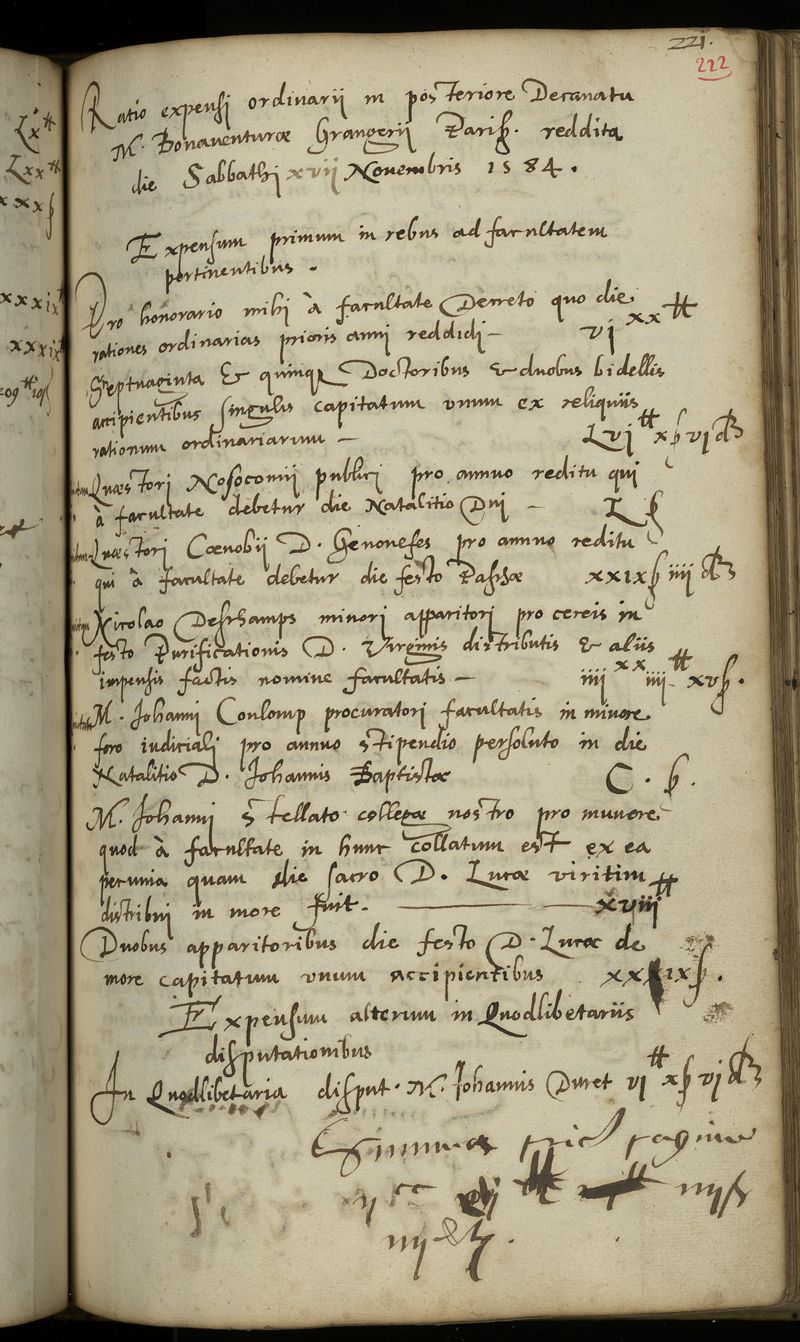 221.
222
Ratio expensi ordinarii in posteriore Decanatu
M. Bonaventuræ Grangerii Parisß. reddita
die Sabbathi xvii Novembris 1584.
Expensum primum in rebus ad facultatem
pertinentibus.
Pro honorario mihi à facultate Decreto quo die
rationes ordinarias prioris anni reddidi — vi xx ₶
Septuaginta & quinq Doctoribus & duobus bidellis
accipientibus singulis capitatum unum ex reliquiis
rationum ordinariarum — Lvi ₶ x ß vi d
Quæstori Nosocomii publici pro annuo reditu qui
à facultate debetur die Natalitio Dni — L ß
Quæstori Cœnobii D. Genovefes pro annuo reditu
qui à facultate debetur die festo Paschæ xxix ß iiii d
Nicolao Deschamps minori apparitori pro cereis in
festo Purificationis D. Virginis distributis & aliis
impensis factis nomine facultatis — iiii xx iiii ₶ xv ß.
M. Johanni Coulomp procuratori facultatis in minore
foro iudiciali pro annuo stipendio persoluto in die
Natalitio D. Johannis Baptistæ C. ß.
M. Johanni Stellato collegæ nostro pro munere
quod à facultate in hunc collatum est ex ea
pecunia quam die sacro D. Lucæ viritim
distribui in more fuit. — xviii ₶
Duobus apparitoribus die festo D. Lucæ de
more capitatum unum accipientibus xx ix ß.
Expensum alterum in Quodlibetariis
disputationibus
In Quodlibetaria disput. M. Johannis Duret vi ₶ x ß vi d
Summa paginæ
ii cc ₶ iiii ß
iiii d.